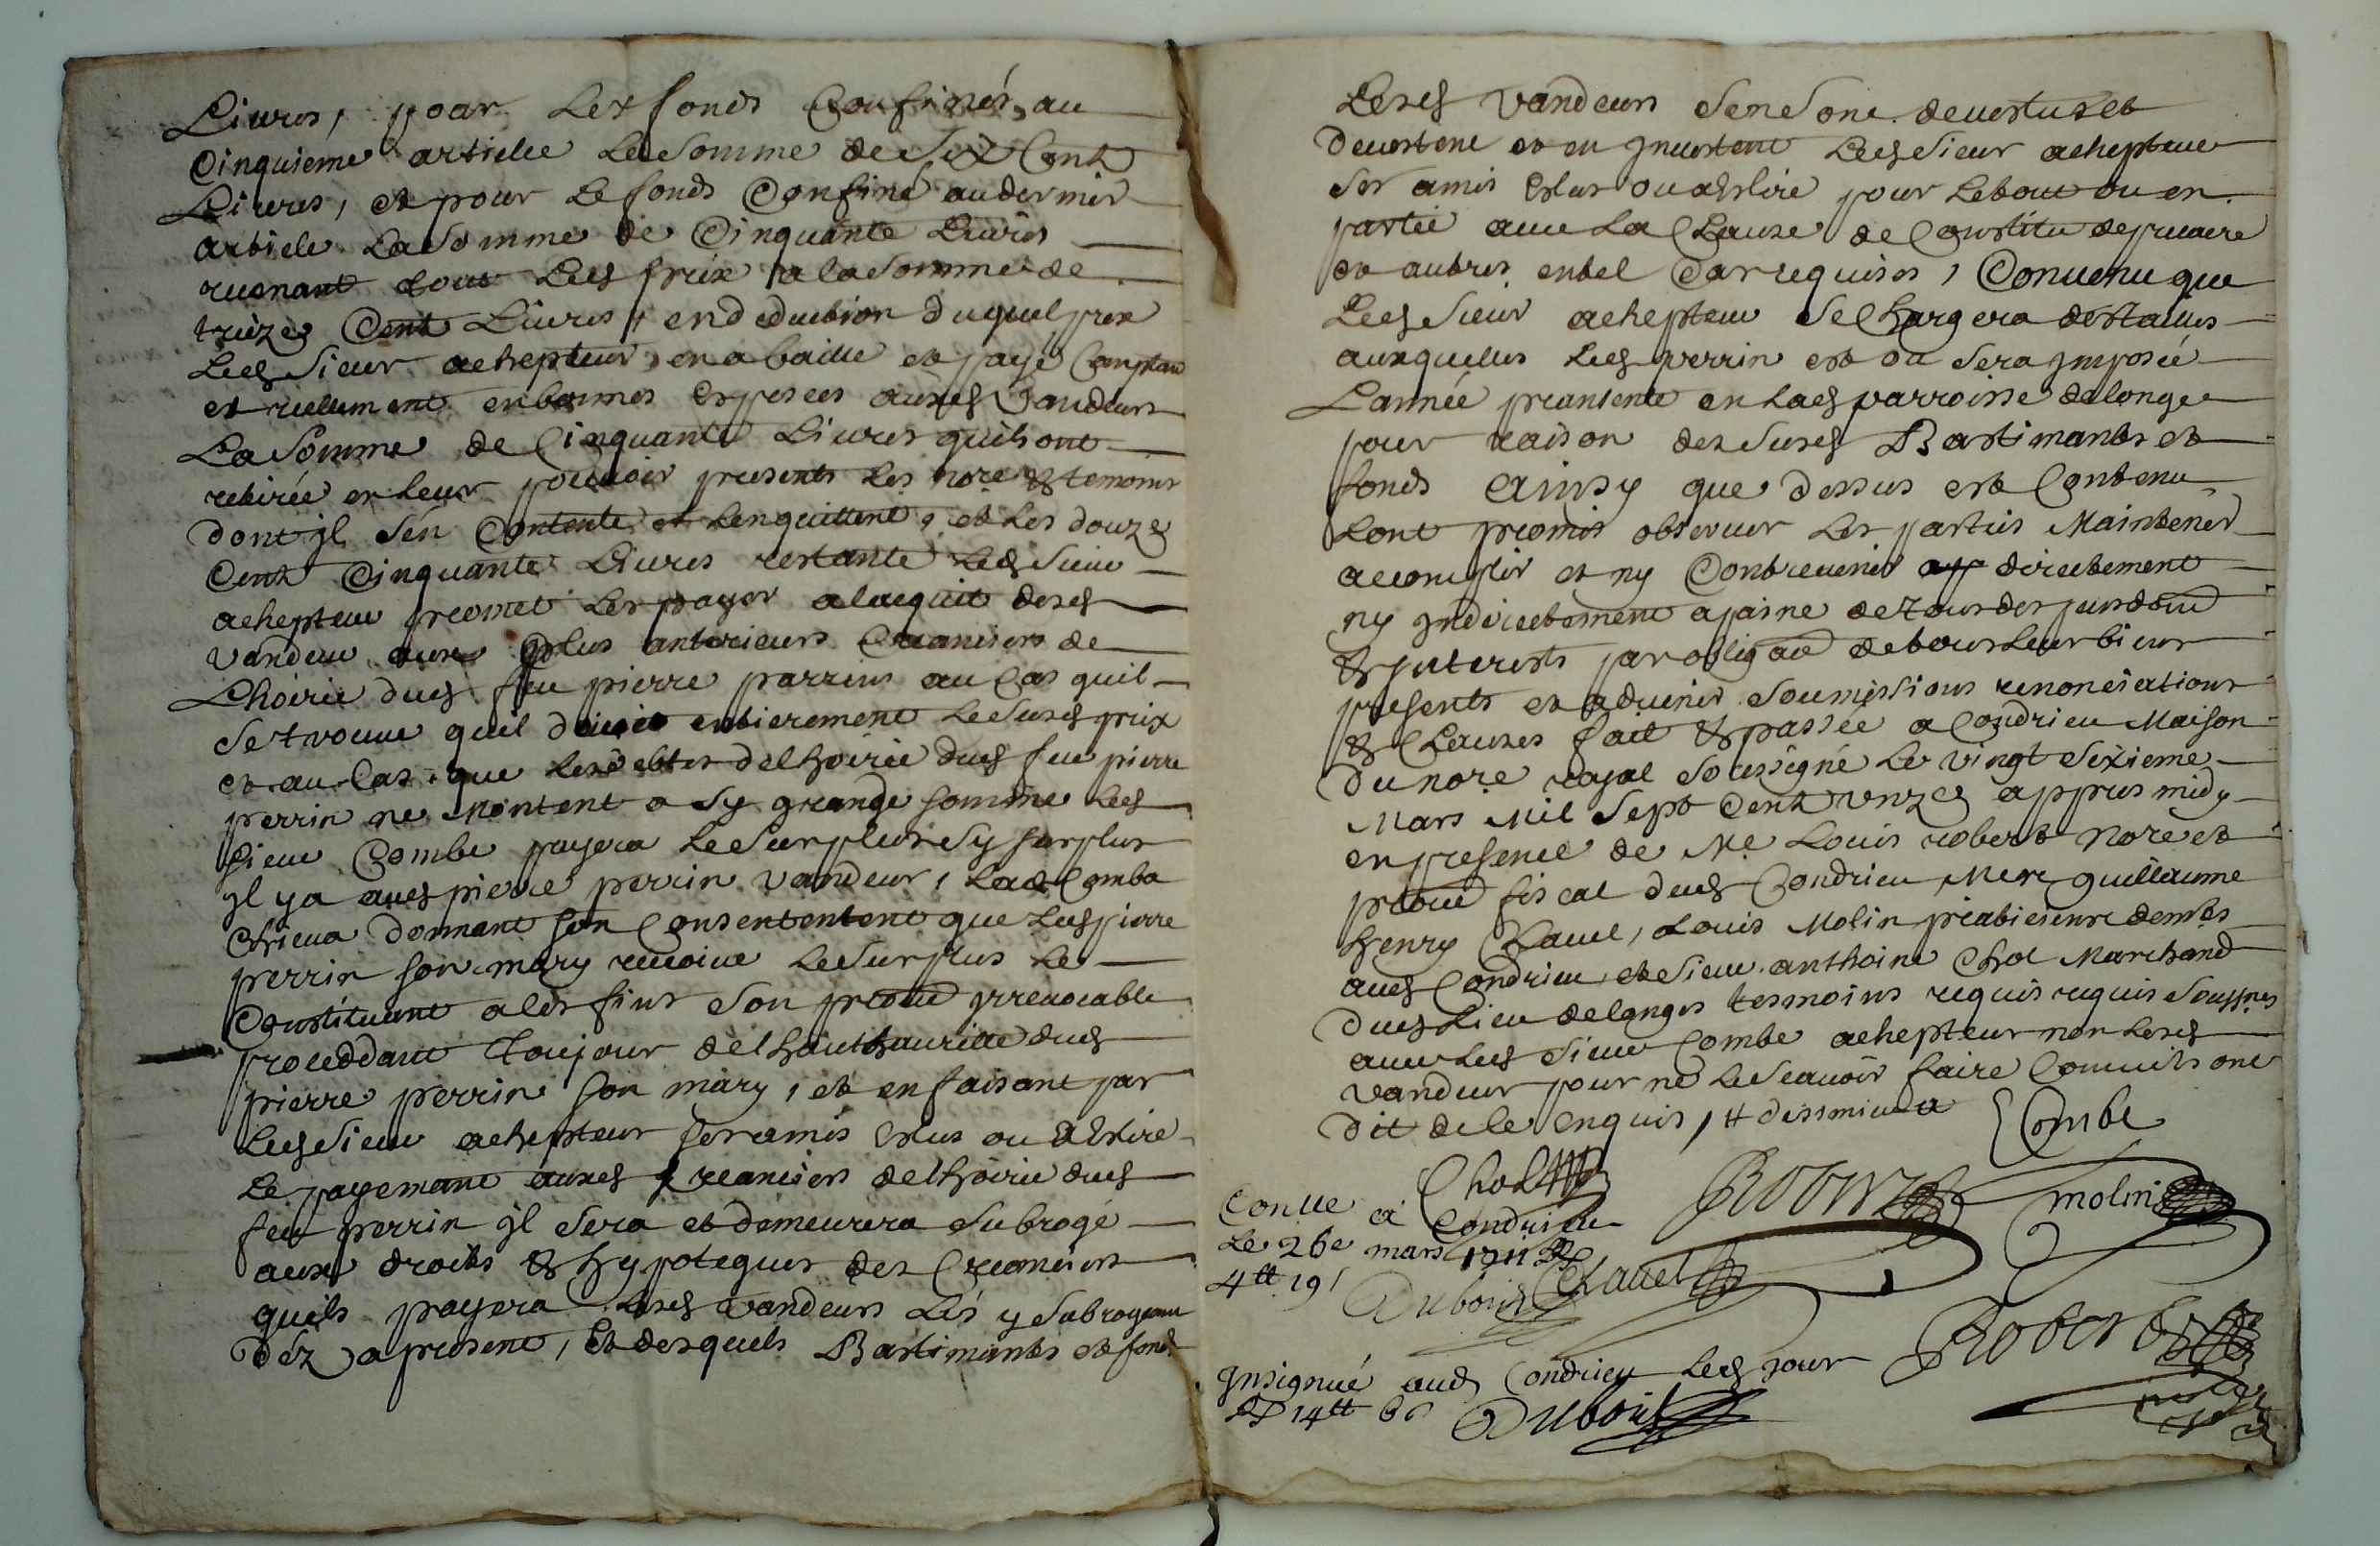 Livres, pour les fonds Confinés, au
Cinquieme article la somme de Six Cent
Livres, et pour le fonds Confiné au dernier
article la somme de Cinquante Livres
revenant tous lesd prix a la somme de
treize Cent Livres, en deduction duquel prix
Led Sieur achepteur, en a baillé et payé Comptan
et reellement en bonnes Espesces auxd Vandeurs
La Somme de Cinquante Livres quils ont
retirée en leur pouvoir presents les nore & temoins
dont jl sen Contente et len quittent, et les douze
Cent Cinquante Livres restante led sieur
achepteur promet les payer a lacquit desd
vandeur aux plus anterieurs Creanciers de
Lhoirie dud feu pierre perrin au Cas quil
se trouve quil doivet entierement le susd prix
et au Cas que les debtes de lhoirie dud feu pierre
perrin ne Montent a sy grande somme led
sieur Combe payera le surplus sy surplus
jl y a aud pierre perrin vandeur, lad Combe
donnant son Consentement que led pierre
perrin son mary recoive le surplus le
Constituant a les fins son procur jrrevocable
proceddant toujour de lhauthauritte dud
pierre perrin son mary, et en faisant par
led sieur achepteur ses amis Eslus ou a Eslire
Le payemant auxd Creanciers de lhoirie dud
feu perrin jl sera et demeurera subrogé
aux droits & hypoteques des Creanciers
quils payera lesd vandeurs les y subrogeant
dez a present, Et desquels Bastimants et fonds
Lesd vandeurs se ne sont devestus et
Devestent et en jnvestent led sieur achepteur
ses amis Eslus ou a Eslire pour le tout ou en
partie avec la Clause de Constitu de precaire
et autres en tel Cas requises, Convenu que
Led Sieur achepteur se Chargera des tailles
auxquelles led perrin est ou sera jmposée
L'année preantente en lad parroisse de longe
pour raison des susd Bastimants et
fonds Ainsy que dessus est Contenu
Lont promis observer les parties Maintenir
acomplir et ny Contrevenir directement
ny jndirectement a paine de tous despens dom
& jnterests par obligaon de tous leur biens
presents et advenir soumissions renonciations
& Clauses fait & passée a Condrieu Maison
du nore royal soussigné le vingt sixieme
Mars Mil Sept Cent unze appres midy
en presence de Me Louis robert nore et
procur fiscal dud Condrieu guillaume
henry Chavel, Louis Molin
aud Condrieu et sieur anthoine Chol Marchand
dud lieu de longes tesmoins requis requis
avec led sieur Combe achepteur non lesd
vandeur pour ne le scavoir faire Comme ils ont
dit de le enquis,
Combe
Chol
Robert
molin
Conlle a Condrieu
Le 26e mars 1711
4tt 19s
Dubois
Chavel
Robert
jnsignué aud Condrieu led jour
Dubois